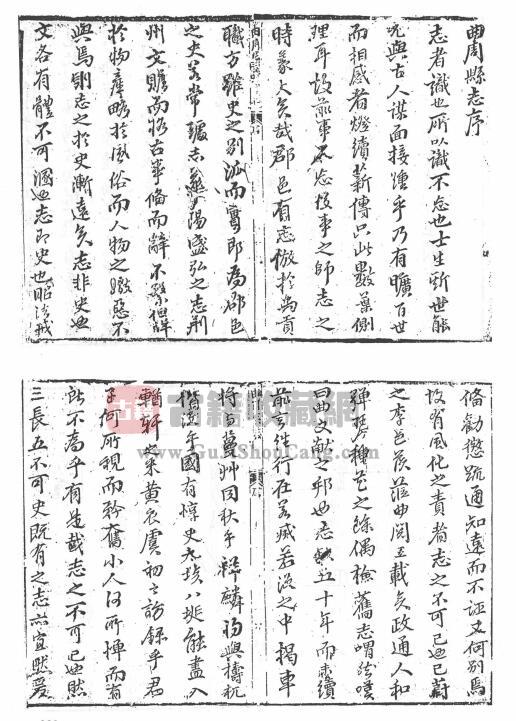 曲周縣志序
志者識也所以識不忘也士生斯世能
況與古人謀面接踵乎乃有曠百世
而相感者燈續薪傳只此數葉側
理耳故前事不忘後事之師志之
時義大矣哉郡邑有志倣於禹貢
職方雖史之別派而實即為郡邑
之史若常璩志盛弘之志荊
州文贍而古事備而辭不
於物產略於風俗而人物之媺惡不
與焉則志之於史漸遠矣志非史也
文各有體不可溷也志即史也昭法戒
備勸懲疏通知遠而不誣又何別焉
故有風化之責者志之不可已也已蔚
之李邑侯蒞曲閱五載矣政通人和
彈琴種花之餘偶檢舊志喟然嘆
曰曲文獻之邦也志五十年而未續
前言往行在若滅若沒之中揭車
將與蔓艸同秋乎祥麟將與檮杌
偕 國有惇史九垓八埏能盡入
輶軒之采黃衣虞初之訪錄乎君
子何所視而矜奮小人何所憚而
所不為乎有是哉志之不可已也然
三長五不可史既有之志亦宜然爰